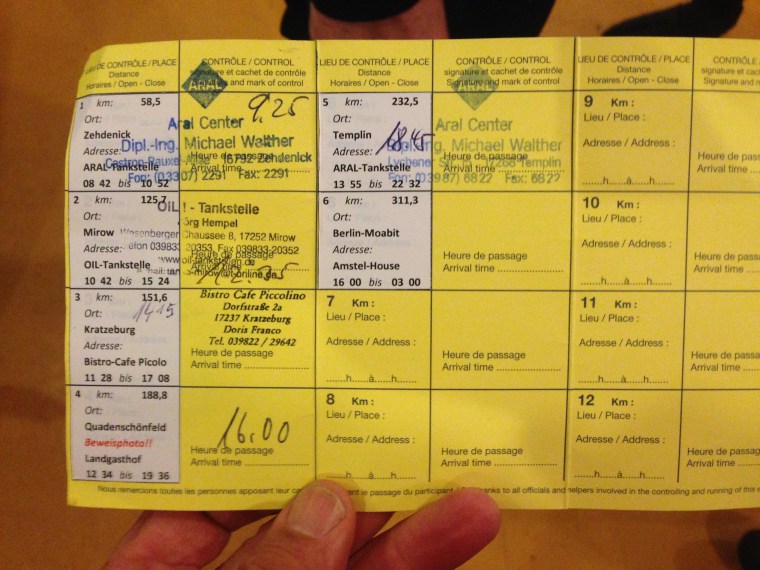 LIEU DE CONTRÔLE / PLACE
Distance
Horaires / Open - Close
CONTRÔLE / CONTROL
signature et cachet de contrôle
and mark of control
ARAL
1 km: 58,5
Ort:
Zehdenick
Adresse:
ARAL-Tankstelle
08 42 bis 10 52
9.25
Aral Center
Dipl.-Ing. Michael Walther
16792 Zehdenick
Fon: (03307) 2291 Fax: 2291
Heure de passage
Arrival time
2 km: 125,7
Ort:
Mirow
Adresse:
OIL-Tankstelle
10 42 bis 15 24
OIL! - Tankstelle
Jörg Hempel
Chaussee 8, 17252 Mirow
20353, Fax 039833-20352
Heure de passage
Arrival time
3 km: 151,6
Ort:
14.15
Kratzeburg
Adresse:
Bistro-Cafe Picolo
11 28 bis 17 08
Bistro Cafe Piccolino
Dorfstraße 2a
17237 Kratzeburg
Doris Franco
Tel. 039822 / 29642
Heure de passage
Arrival time
4 km: 188,8
Ort:
Quadenschönfeld
Beweisphoto!!
Landgasthof
12 34 bis 19 36
16.00
Heure de passage
Arrival time
LIEU DE CONTRÔLE / PLACE
Distance
Horaires / Open - Close
CONTRÔLE / CONTROL
signature et cachet de contrôle
Signature and mark of control
ARAL
5 km: 232,5
Ort:
Templin
Adresse:
ARAL-Tankstelle
13 55 bis 22 32
18.45
Aral Center
Dipl.-Ing. Michael Walther
Lychener 17268 Templin
Fon: (03987) 6822 Fax: 6822
Heure de passage
Arrival time
6 km: 311,3
Ort:
Berlin-Moabit
Adresse:
Amstel-House
16 00 bis 03 00
Heure de passage
Arrival time
7 Km :
Lieu / Place :
Adresse / Address :
......h......à......h......
Heure de passage
Arrival time
8 Km :
Lieu / Place :
Adresse / Address :
......h......à......h......
Heure de passage
Arrival time
LIEU DE CONTRÔLE / PLACE
Distance
Horaires / Open - Close
CONTRÔ
signature et cach
Signature and m
9 Km :
Lieu / Place :
Adresse / Address :
......h......à......h......
Heure de passa
Arrival time
10 Km :
Lieu / Place :
Adresse / Address :
......h......à......h......
Heure de passa
Arrival time
11 Km :
Lieu / Place :
Adresse / Address :
......h......à......h......
Heure de passa
Arrival time
12 Km :
Lieu / Place :
Adresse / Address :
......h......à......h......
Heure de passa
Arrival time
Nous remercions toutes les personnes apposant leur le passage du participant to all officials and helpers involved in the controlling and running of this